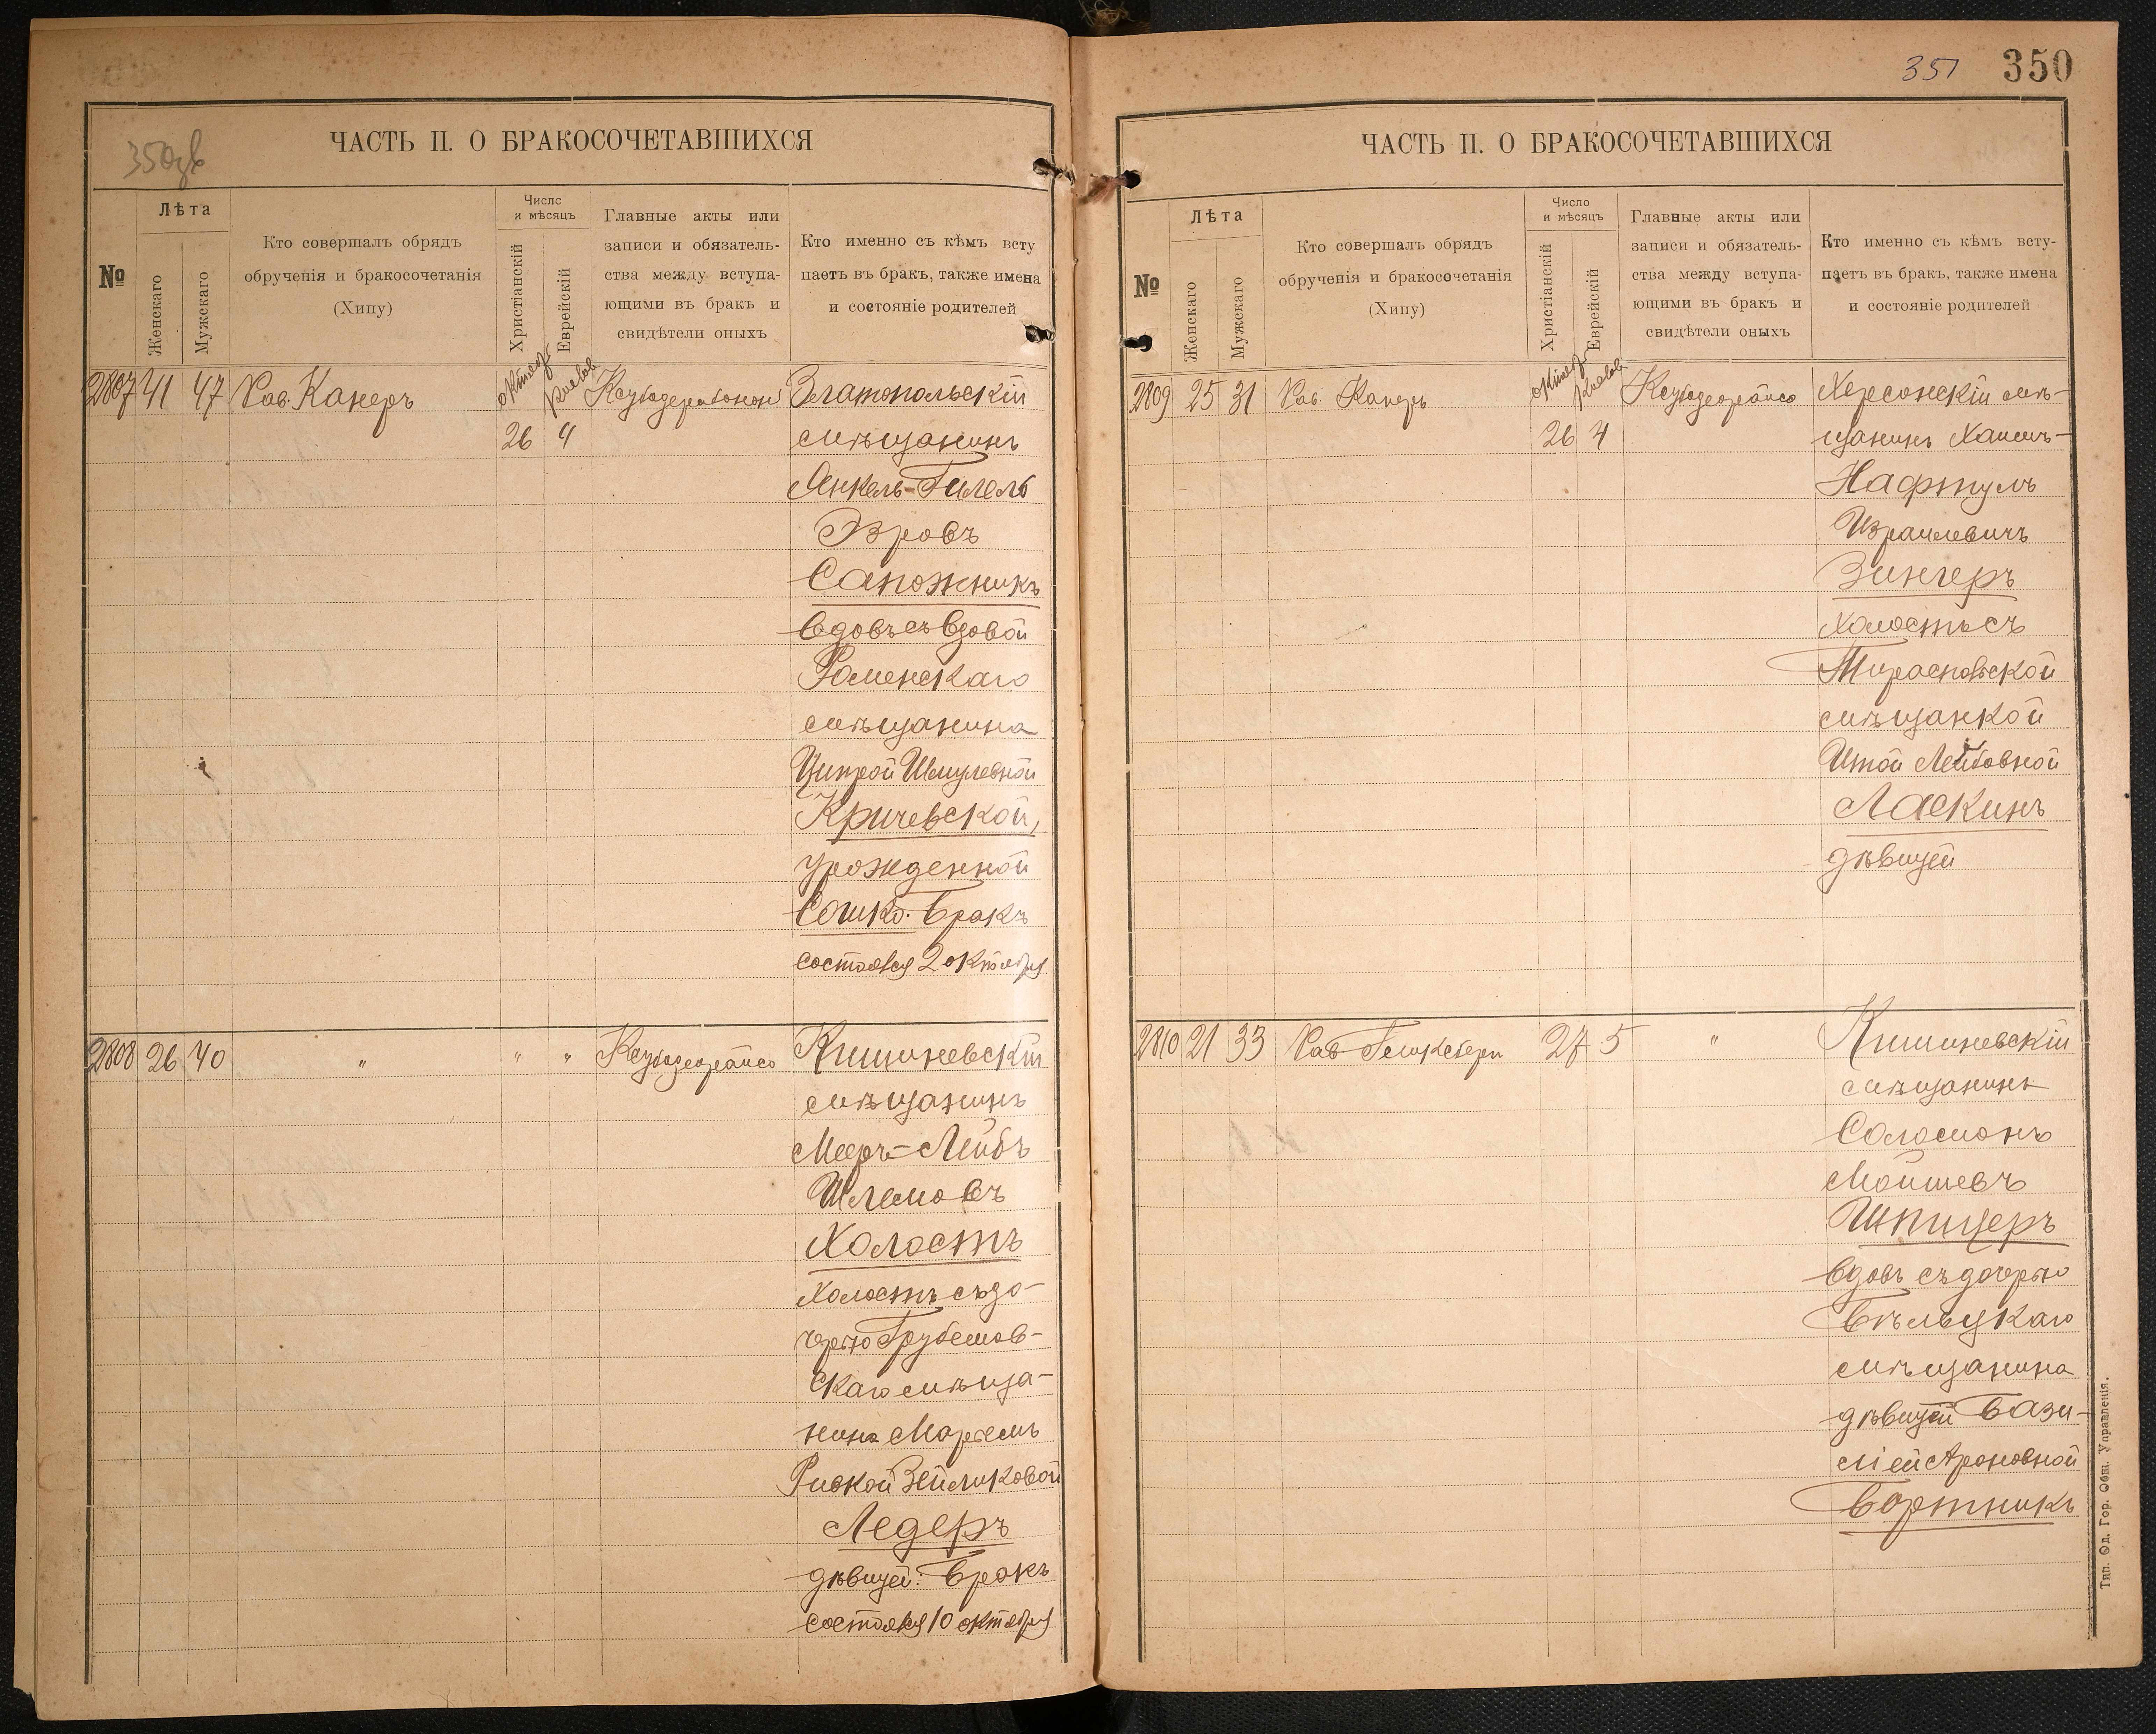 350 об
ЧАСТЬ II. О БРАКОСОЧЕТАВШИХСЯ
№
Лѣта
Женскаго
Мужскаго
Кто совершалъ обрядъ
обрученія и бракосочетанія
(Хипу)
Число
и мѣсяцъ
Христіанскій
Еврейскій
Главные акты или
записи и обязатель-
ства между вступа-
ющими въ бракъ и
свидѣтели оныхъ
Кто именно съ кѣмъ всту
паетъ въ бракъ, также имена
и состояніе родителей
2807 41 47 Рав. Канеръ
26 4
Златопольскій
мѣщанинъ
Янкель-Гилель
Эзровъ
Сапожникъ
вдовъ съ вдовой
Роменскаго
мѣщанина
Ципрой Шмулевной
Кричевской,
урожденной
Сошко. Бракъ
состоялся 2 октября
2808 26 40 " " "
Кишиневскій
мѣщанинъ
Мееръ-Лейбъ
Шлемовъ
Холостъ
холостъ съ до-
черью Грубешов-
скаго мѣща-
нина Маріемъ
Ривкой Зейликовой
Ледеръ
дѣвицей. Бракъ
состоялся 10 октября
351 350
ЧАСТЬ II. О БРАКОСОЧЕТАВШИХСЯ
№
Лѣта
Женскаго
Мужскаго
Кто совершалъ обрядъ
обрученія и бракосочетанія
(Хипу)
Число
и мѣсяцъ
Христіанскій
Еврейскій
Главные акты или
записи и обязатель-
ства между вступа-
ющими въ бракъ и
свидѣтели оныхъ
Кто именно съ кѣмъ всту-
паетъ въ бракъ, также имена
и состояніе родителей
2809 25 31 Рав. Канеръ
26 4
Херсонскій мѣ-
щанинъ Хаимъ-
Нафтулъ
Израилевичъ
Зингеръ
холостъ съ
Тираспольской
мѣщанкой
Итой Лейбовной
Ласкинъ
дѣвицей
2810 21 33 Рав 27 5 "
Кишиневскій
мѣщанинъ
Соломонъ
Мойшевъ
Шпицеръ
вдовъ съ дочерью
Бѣльцкаго
мѣщанина
дѣвицей Бази-
ліей Ароновной
Бортникъ
Тип. Од. Гор. Общ. Управленія.